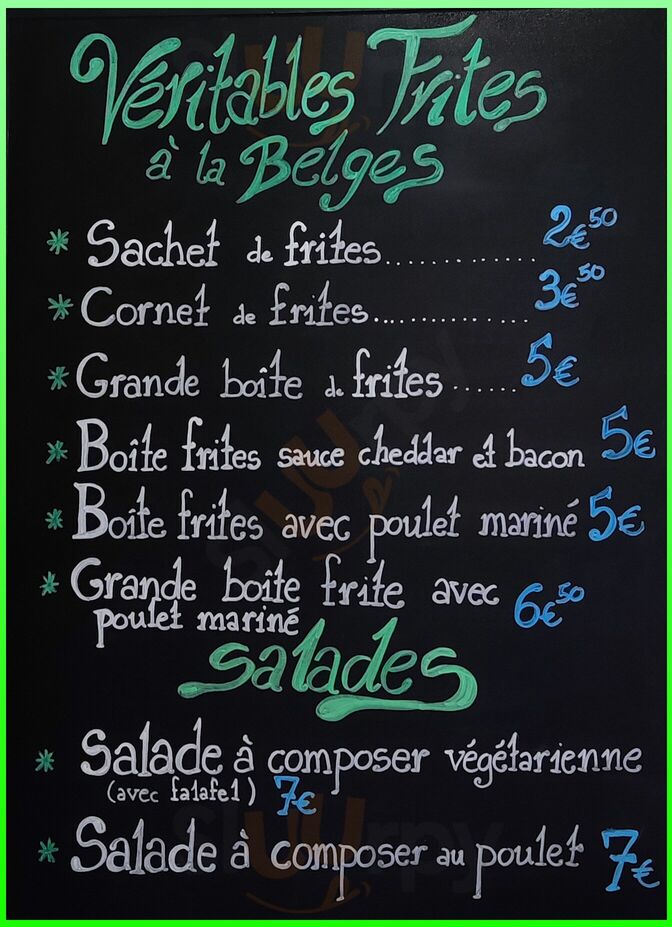 Véritables Frites
à la Belges
* Sachet de frites............. 2€50
* Cornet de frites.............. 3€50
* Grande boîte de frites...... 5€
* Boîte frites sauce cheddar et bacon 5€
* Boîte frites avec poulet mariné 5€
* Grande boîte frite avec 6€50
poulet mariné
Salades
* Salade à composer végétarienne
(avec falafel) 7€
* Salade à composer au poulet 7€